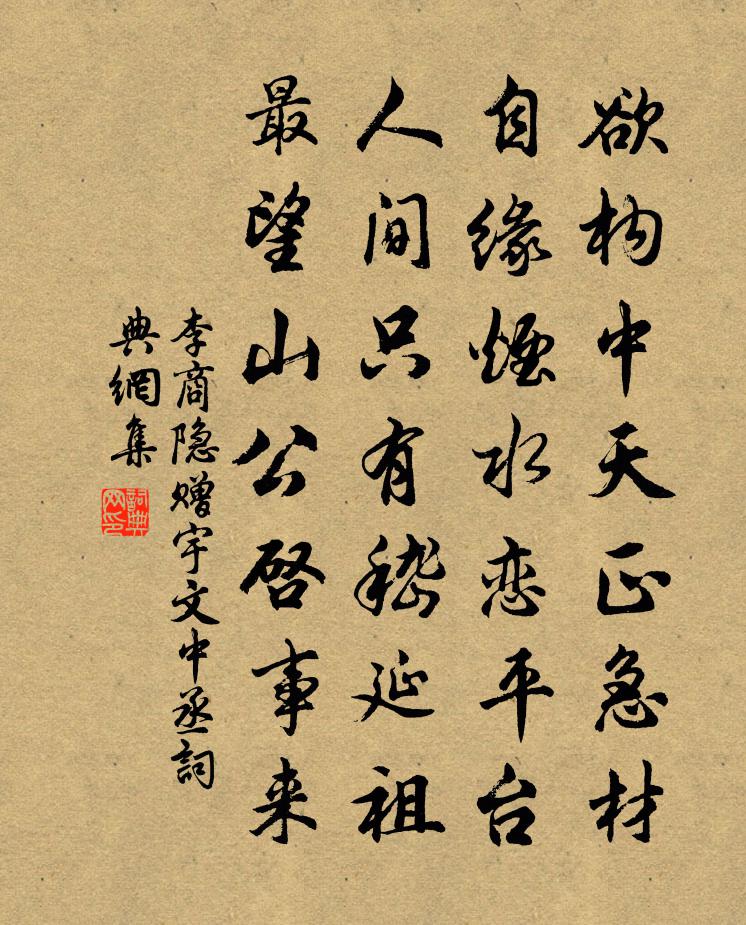 欲构中天正急材
自缘烟水恋平台
人间只有嵇延祖
最望山公启事来
李商隐赠宇文中丞詞
典網集
詞典
网印